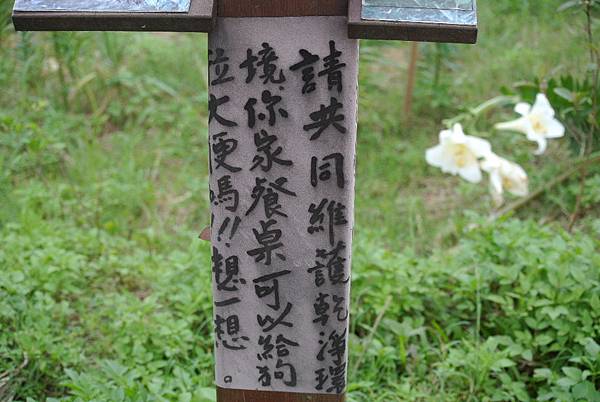 請共同維護乾淨環
境你家餐桌可以給狗
拉大便嗎!!想一想。